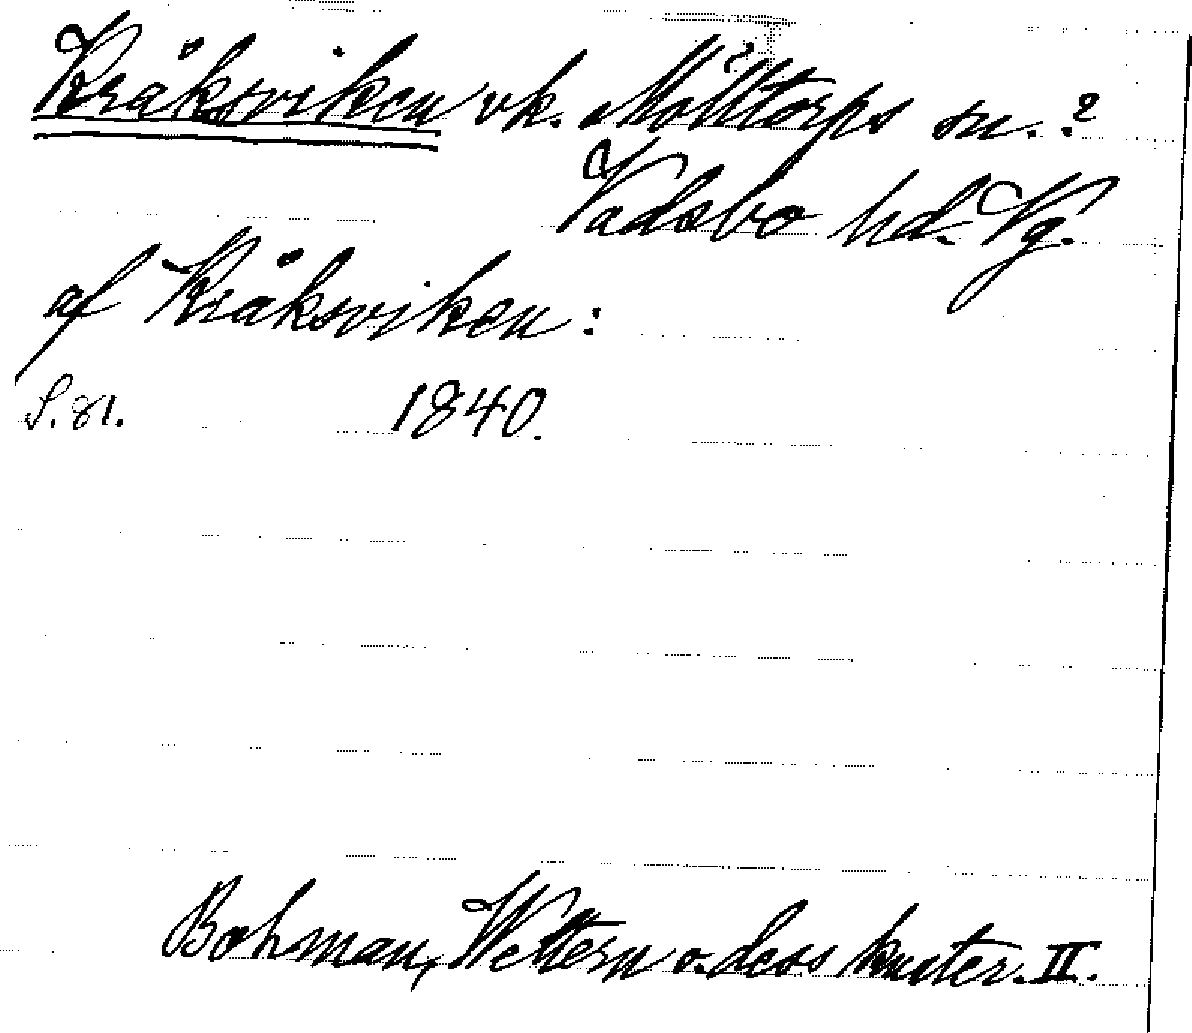 Kråksviken vk. Mölltorps sn. ?
Vadsbo hd. Vg.
af Kråksviken :
S. 81. 1840.
Bohman, Wettern o. dess kuster. II.